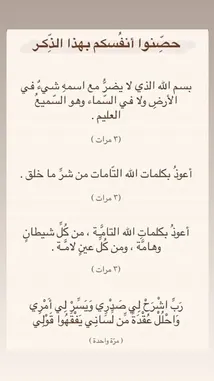 حصِّنوا أنفُسكم بهذا الذِّكـر
بسم الله الذي لا يضرُّ مع اسمهِ شيءٌ في
الأرضِ ولا في السّماء وهو السّميعُ
العليم .
(٣ مرات )
أعوذُ بكلمات الله التَّامات من شرِّ ما خلق .
(٣ مرات )
أعوذُ بكلماتِ الله التامَّـة ، من كُلِّ شيطانٍ
وهامَّة ، ومن كُلِّ عينٍ لامَّـة .
(٣ مرات )
رَبِّ اشْرَحْ لِي صَدْرِي وَيَسِّرْ لِي أَمْرِي
وَاحْلُلْ عُقْدَةً مِّن لِّسَانِي يَفْقَهُوا قَوْلِي
( مرّة واحدة )